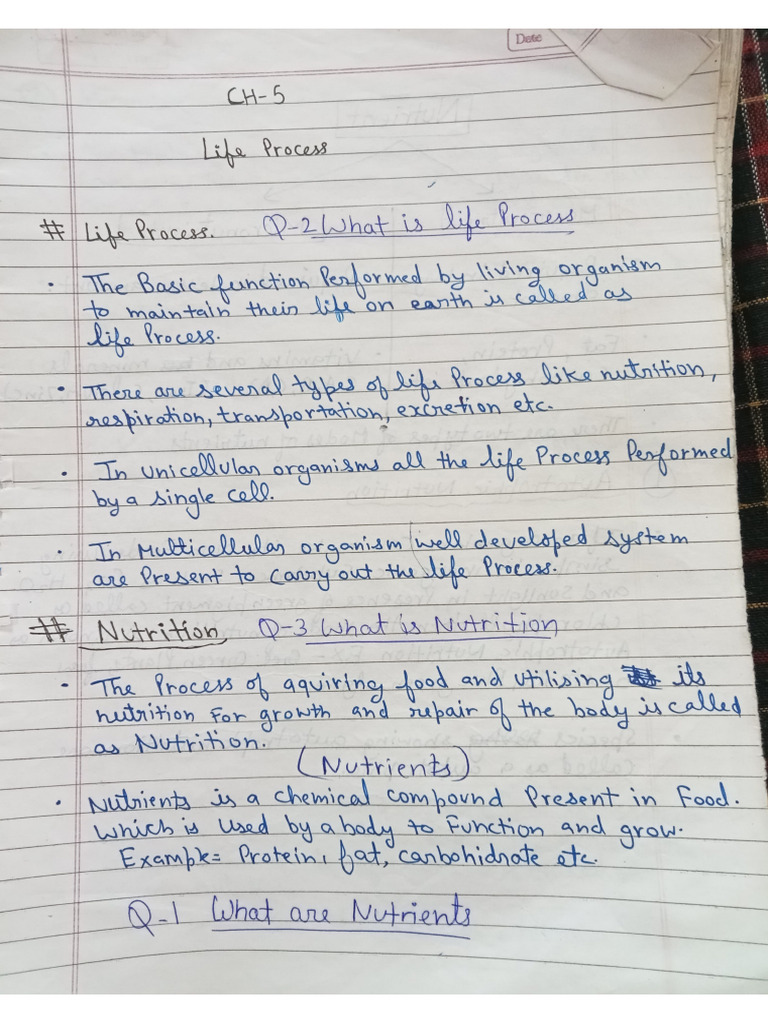 Date
CH-5
Life Process
# Life Process. Q-2 What is life Process
• The Basic function Performed by living organism
to maintain their life on earth is called as
life Process.
• There are several types of life Process like nutrition,
respiration, transportation, excretion etc.
• In unicellular organisms all the life Process Performed
by a single cell.
• In Multicellular organism well developed system
are Present to carry out the life Process.
# Nutrition Q-3 What is Nutrition
• The Process of aquiring food and utilising its
nutrition For growth and repair of the body is called
as Nutrition.
(Nutrients)
• Nutrients is a chemical compound Present in Food.
Which is used by a body to Function and grow.
Example= Protein, fat, carbohidrate etc.
Q-1 What are Nutrients